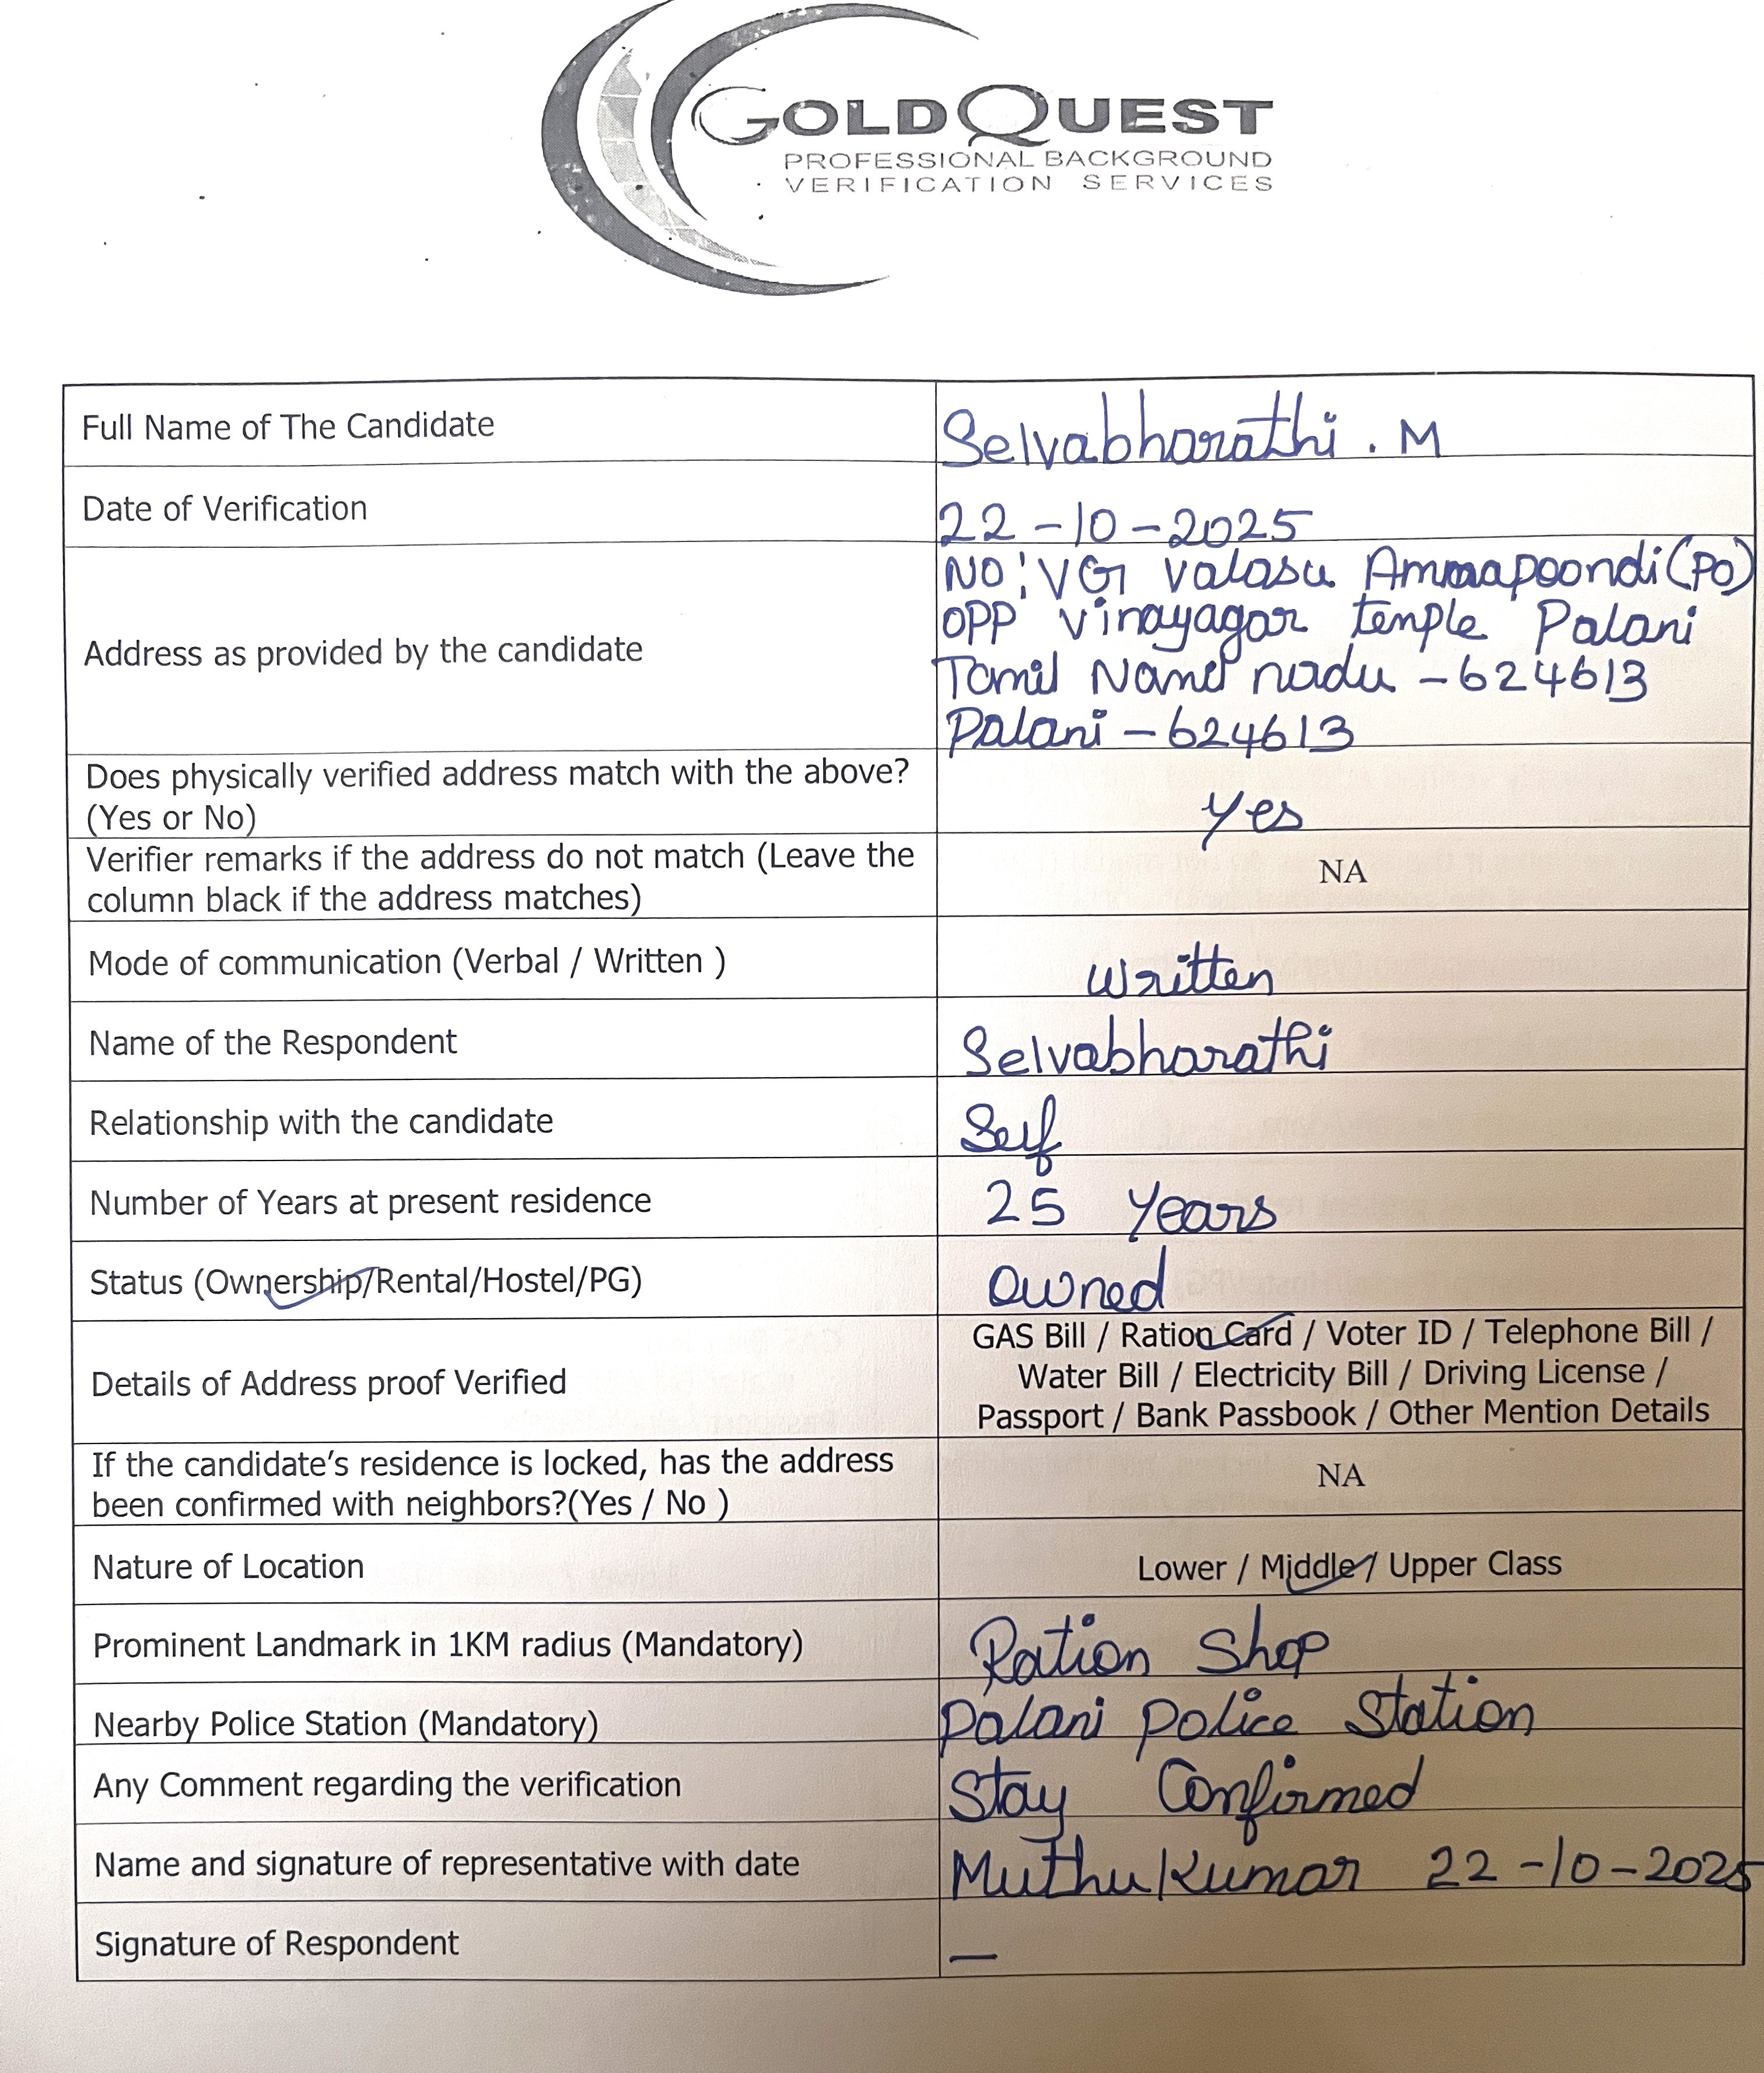 GOLDQUEST
PROFESSIONAL BACKGROUND
VERIFICATION SERVICES
Full Name of The Candidate
Selvabharathi . M
Date of Verification
22-10-2025
Address as provided by the candidate
NO: VG valasu Ammapoondi (PO)
OPP vinayagar temple Palani
Tamil nadu - 624613
Palani - 624613
Does physically verified address match with the above?
(Yes or No)
yes
Verifier remarks if the address do not match (Leave the
column black if the address matches)
NA
Mode of communication (Verbal / Written )
Written
Name of the Respondent
Selvabharathi
Relationship with the candidate
Self
Number of Years at present residence
25 Years
Status (Ownership/Rental/Hostel/PG)
Owned
Details of Address proof Verified
GAS Bill / Ration Card / Voter ID / Telephone Bill /
Water Bill / Electricity Bill / Driving License /
Passport / Bank Passbook / Other Mention Details
If the candidate's residence is locked, has the address
been confirmed with neighbors?(Yes / No )
NA
Nature of Location
Lower / Middle / Upper Class
Prominent Landmark in 1KM radius (Mandatory)
Ration Shop
Nearby Police Station (Mandatory)
Palani Police Station
Any Comment regarding the verification
Stay Confirmed
Name and signature of representative with date
Muthu Kumar 22-10-2025
Signature of Respondent
—